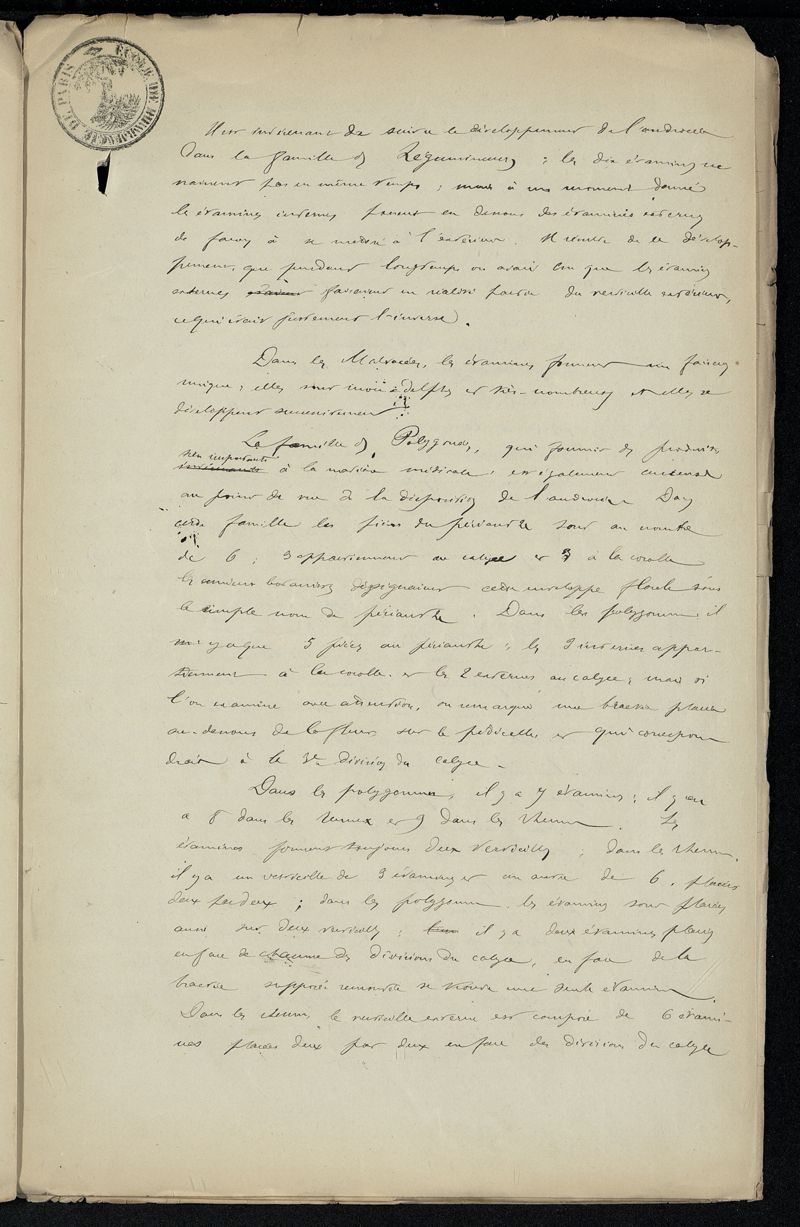 ÉCOLE DE PHARMACIE DE PARIS
Il est intéressant de suivre le développement de l'androcée
Dans la famille des Légumineuses ; les dix étamines ne
naissent pas en même temps ; mais à un moment donné
les étamines internes passent en dessous des étamines externes
de façon à se mettre à l'extérieur. Il résulte de ce dévelop-
pement, que pendant longtemps on avait cru que les étamines
externes étaient faisaient en réalité partie du verticille extérieur,
ce qui était justement l'inverse.
Dans les Malvacées, les étamines forment un faisceau
unique, elles sont monadelphes et très-nombreuses et elles se
développent successivement
La famille des Polygonées, qui fournit des produits
très importants
intéressants à la matière médicale, est également curieuse
au point de vue de la disposition de l'androcée. Dans
cette famille les pièces du périanthe sont au nombre
de 6 ; 3 appartiennent au calyce et 3 à la corolle
les anciens botanistes désignaient cette enveloppe florale sous
le simple nom de périanthe. Dans les polygonum il
n'y a que 5 pièces au périanthe ; les 3 internes appar-
tiennent à la corolle et les 2 externes au calyce ; mais si
l'on examine avec attention, on remarque une bractée placée
au-dessous de la fleur sur le pédicelle et qui correspon
drait à la 3e division du calyce.
Dans les polygonum, il y a 7 étamines ; il y en
a 8 dans les rumex et 9 dans les rheum. Les
étamines forment toujours deux verticilles ; dans les rheum,
il y a un verticille de 3 étamines et un autre de 6, placées
deux par deux ; dans les polygonum les étamines sont placées
aussi sur deux verticilles ; il y a deux étamines placées
en face de chacune des divisions du calyce, en face de la
bractée supposée remontée se trouve une seule étamine
Dans les rheum, le verticille externe est composé de 6 étami-
nes placées deux par deux en face des divisions du calyce